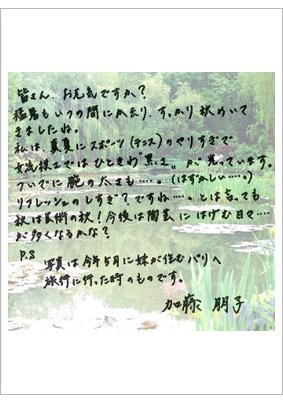 皆さん、お元気ですか？
猛暑もいつの間にか去り、すっかり秋めいて
きましたね。
私は、真夏にスポーツ（テニス）のやりすぎで
女流棋士ではひときわ黒さ。が光っています。
ついでに腕の太さも‥‥。（はずかしい‥‥。）
リフレッシュのしすぎ？ですね‥‥。とは言っても
秋は芸術の秋！今後は陶芸にはげむ日々‥‥
が多くなるかな？
P.S
写真は今年5月に妹が住むパリへ
旅行に行った時のものです。
加藤 朋子